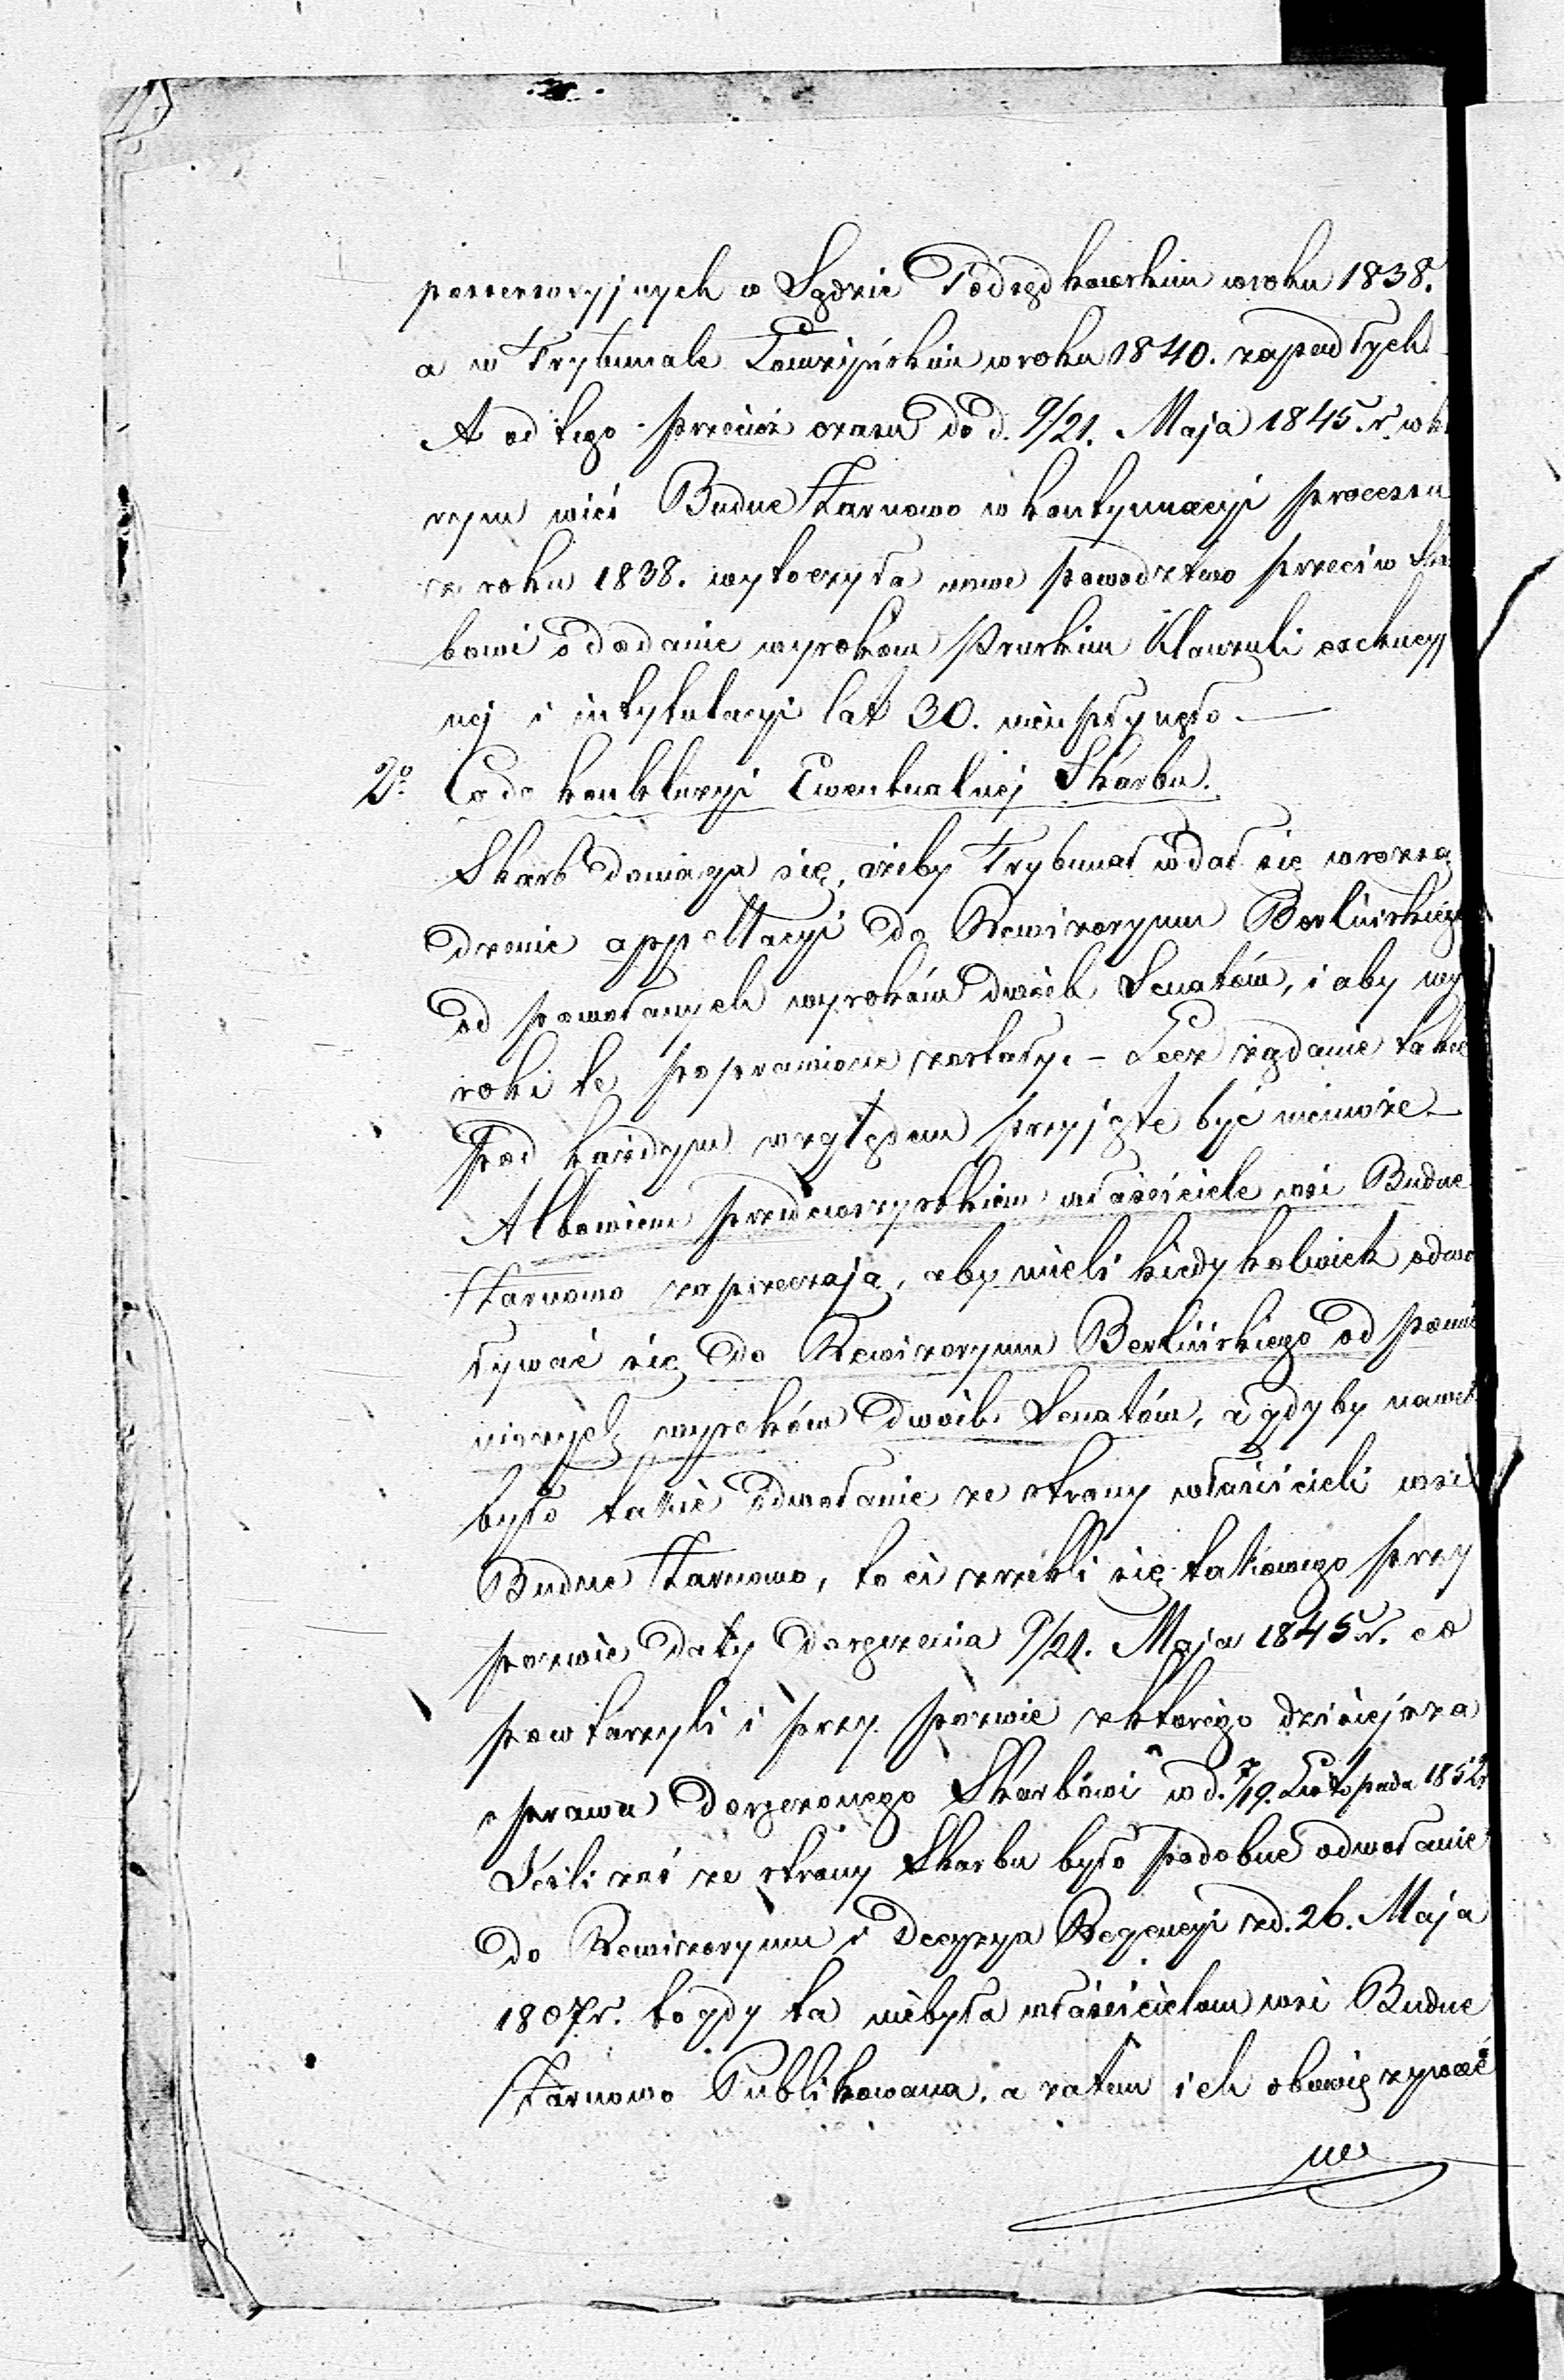 possessyjnych w Sądzie Podsędkowskim w roku 1838.
a w Trybunale Łomżyńskim w roku 1840. zapadłych
A od tego przecież czasu do d. 9/21. Maja 1845. r. w któ
rym wieś Budne Żarnowo w kontynuacyi processu
z roku 1838. wytoczyła nowe powództwo przeciw Skar
bowi o dodanie wyrokom Pruskim Klauzuli exekucyj
nej i intytulacyi lat 30. nieupłynęło.
2o. Co do konkluzyi Ewentualnej Skarbu.
Skarb domaga się, ażeby Trybunał wdał się w rozsą
dzenie appellacyi do Rewizoryum Berlińskiego
od powołanych wyroków dwóch Senatów, i aby wy
roki te poprawione zostały. - Lecz żądanie takie
Pod każdym względem przyjęte być niemoże
Albowiem przedewszystkiem właściciele wsi Budne
Żarnowo zaprzeczają, aby mieli kiedykolwiek odwo
ływać się do Rewizoryum Berlińskiego od pomie
nionych wyroków dwóch Senatów, a gdyby nawet
było takie odwołanie ze strony właścicieli wsi
Budne Żarnowo, to ci zrzekli się takowego przy
pozwie daty doręczenia 9/21. Maja 1845 r. co
powtórzyli i przy pozwie z którego dzisiejsza
sprawa doręczonego Skarbowi w d. 7/19. Listopada 1852 r
Jeśli zaś ze strony Skarbu było podobne odwołanie
do Rewizoryum i Decyzya Regencyi z d. 26. Maja
1807 r. to gdy ta niebyła właścicielom wsi Budne
Żarnowo Publikowana, a zatem ich obowiązywać
nie